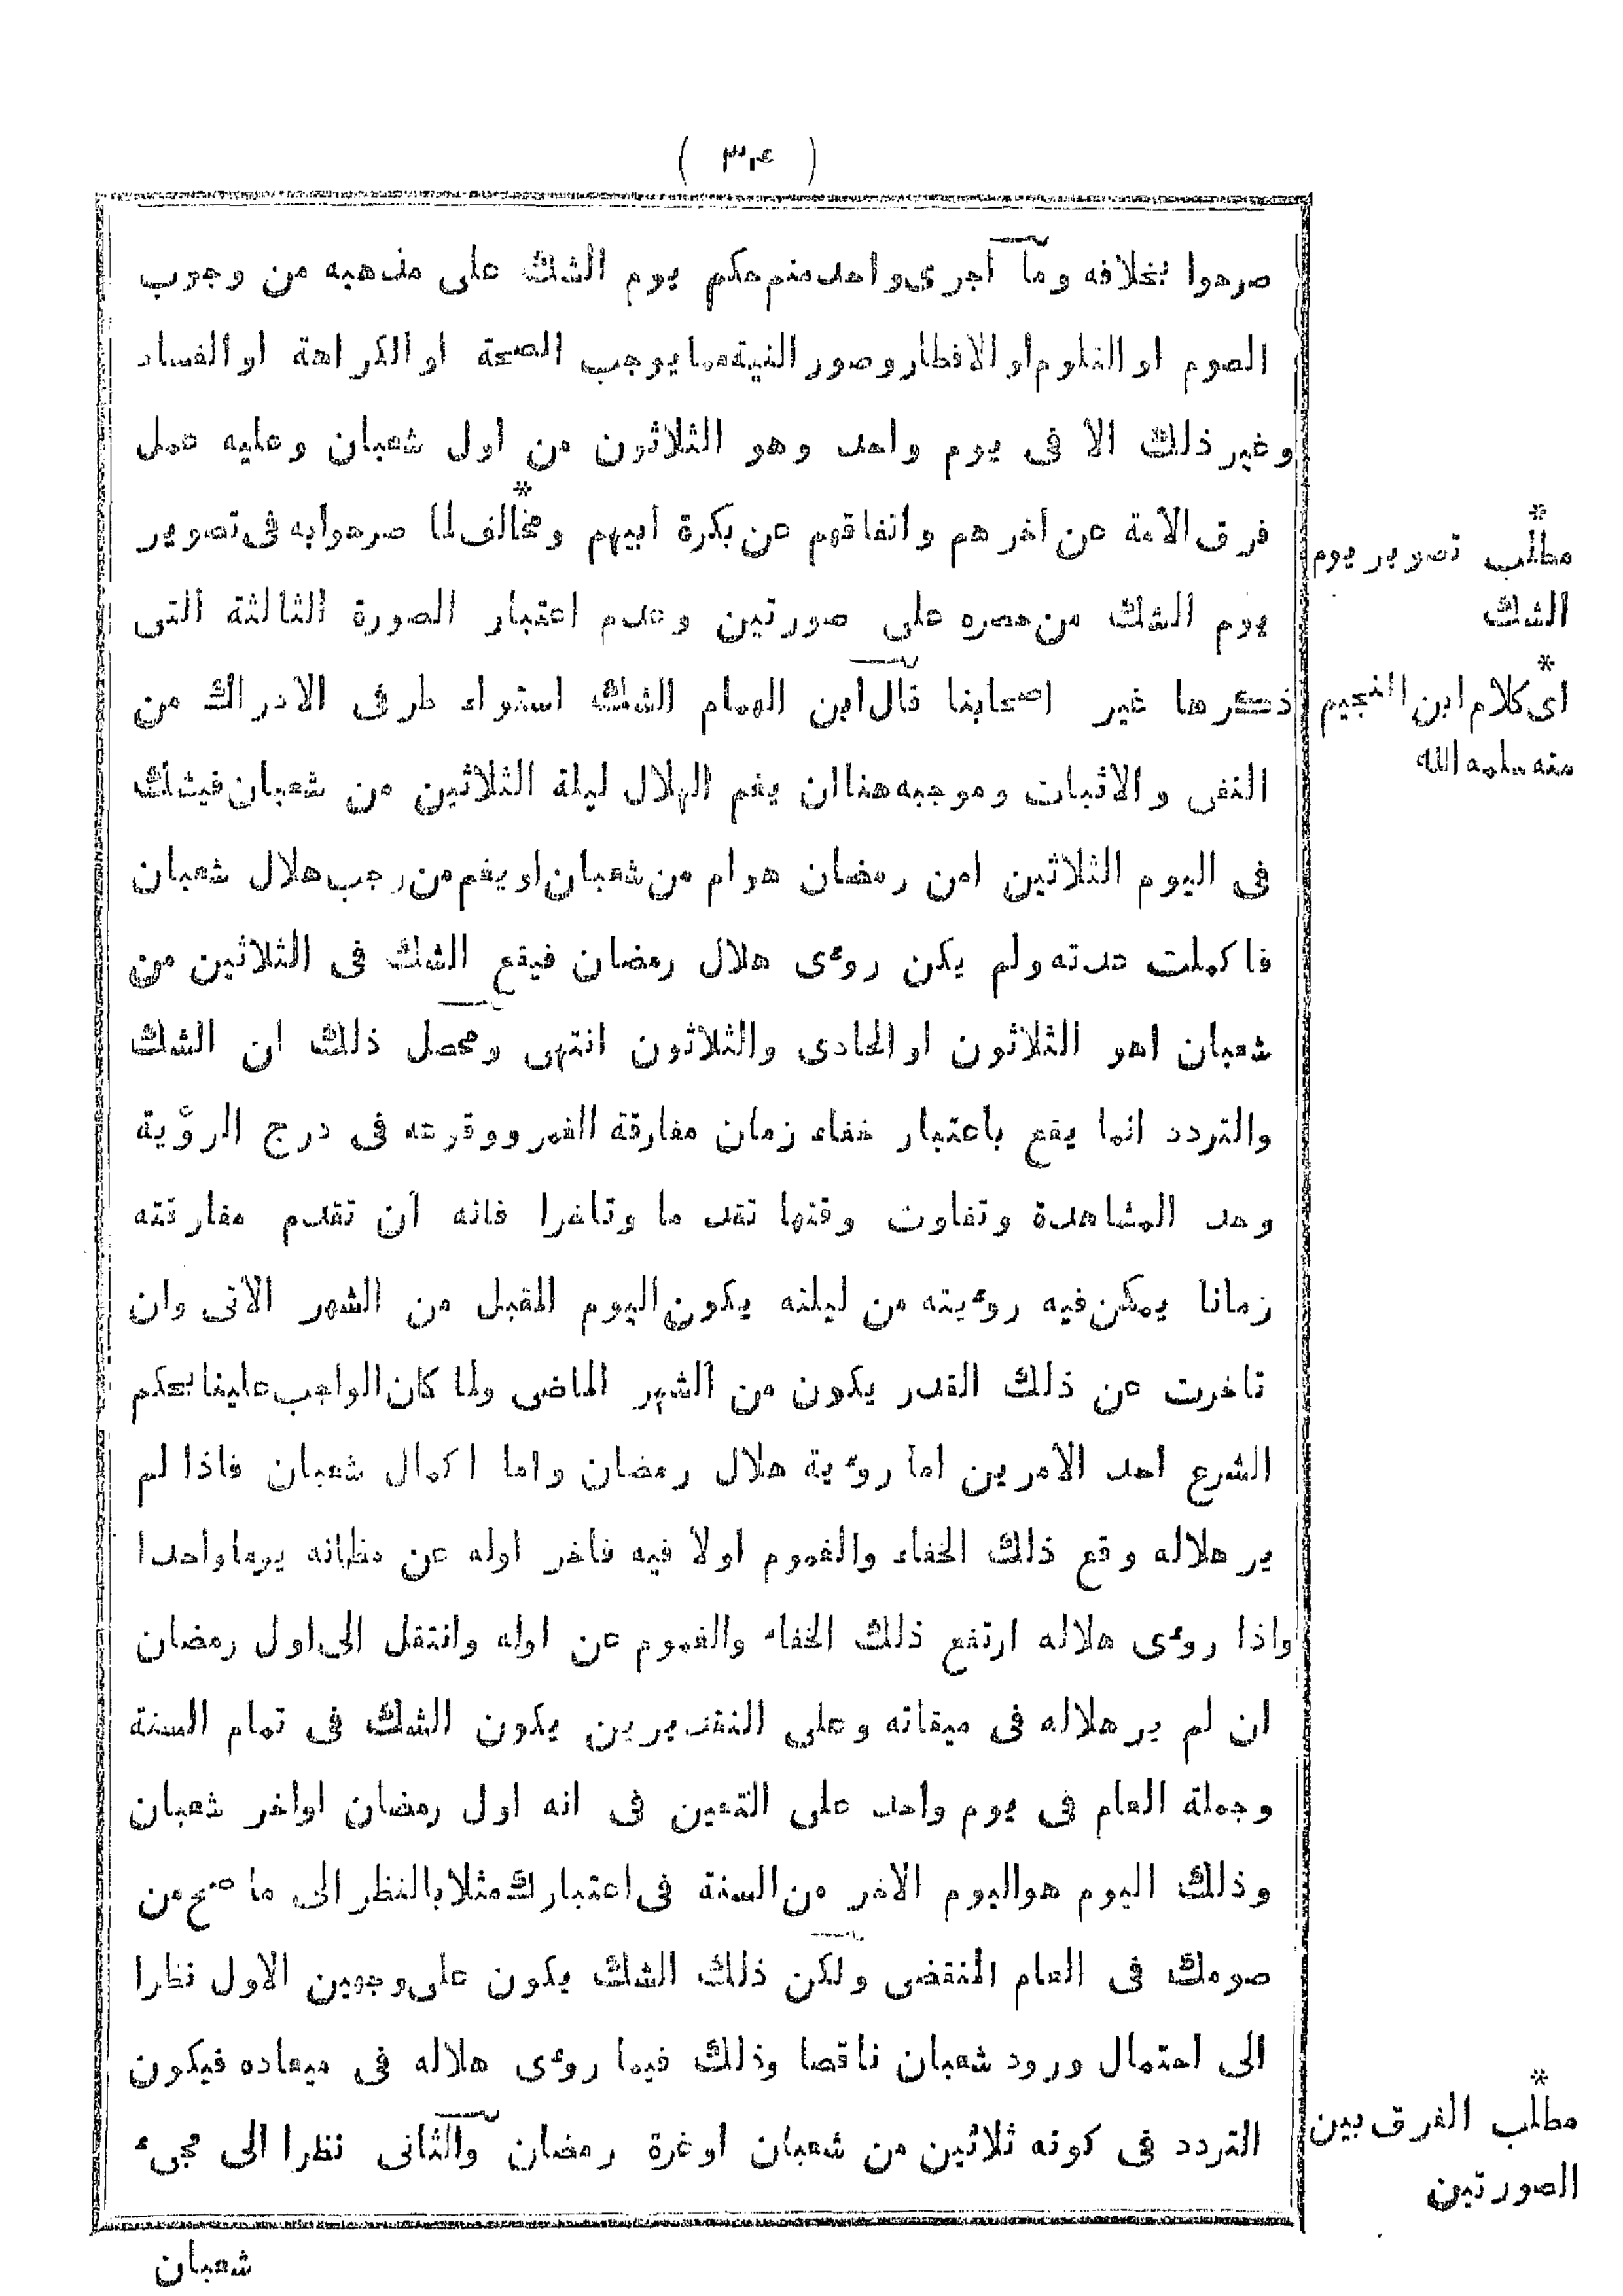 ( ٣٤ )
صرحوا بخلافه وما اجرى واحد منهم حكم يوم الشك على مذهبه من وجوب
الصوم او التلوم او الافطار وصور النية مما يوجب الصحة او الكراهة او الفساد
وغير ذلك الا فى يوم واحد وهو الثلاثون من اول شعبان وعليه عمل
فرق الامة عن اخرهم واتفاقهم عن بكرة ابيهم * ومخالف لما صرحوا به فى تصوير
يوم الشك من حصره على صورتين وعدم اعتبار الصورة الثالثة التى
ذكرها غير اصحابنا قال ابن الهمام الشك استواء طرفى الادراك من
النفى والاثبات وموجبه هنا ان يغم الهلال ليلة الثلاثين من شعبان فيشك
فى اليوم الثلاثين امن رمضان هو ام من شعبان او يغم من رجب هلال شعبان
فاكملت عدته ولم يكن روءى هلال رمضان فيقع الشك فى الثلاثين من
شعبان اهو الثلاثون او الحادى والثلاثون انتهى ومحصل ذلك ان الشك
والتردد انما يقع باعتبار خفاء زمان مفارقة القمر ووقوعه فى درج الرؤية
وحد المشاهدة وتفاوت وقتها تقدما وتاخرا فانه ان تقدم مفارقته
زمانا يمكن فيه روءيته من ليلته يكون اليوم المقبل من الشهر الاتى وان
تاخرت عن ذلك القدر يكون من الشهر الماضى ولما كان الواجب علينا بحكم
الشرع احد الامرين اما روءية هلال رمضان واما اكمال شعبان فاذا لم
ير هلاله وقع ذلك الخفاء والغموم اولا فيه فاخر اوله عن مظانه يوما واحدا
واذا روءى هلاله ارتفع ذلك الخفاء والغموم عن اوله وانتقل الى اول رمضان
ان لم ير هلاله فى ميقاته وعلى التقديرين يكون الشك فى تمام السنة
وجملة العام فى يوم واحد على التعين فى انه اول رمضان او اخر شعبان
وذلك اليوم هو اليوم الاخر من السنة فى اعتبارك مثلا بالنظر الى ما صح من
صومك فى العام المنقضى ولكن ذلك الشك يكون على وجهين الاول نظرا
الى احتمال ورود شعبان ناقصا وذلك فيما روءى هلاله فى ميعاده فيكون
التردد فى كونه ثلاثين من شعبان او غرة رمضان والثانى نظرا الى مجىء
شعبان
*
مطلب تصوير يوم
الشك
*
اى كلام ابن النجيم
منه سلمه الله
*
مطلب الفرق بين
الصورتين